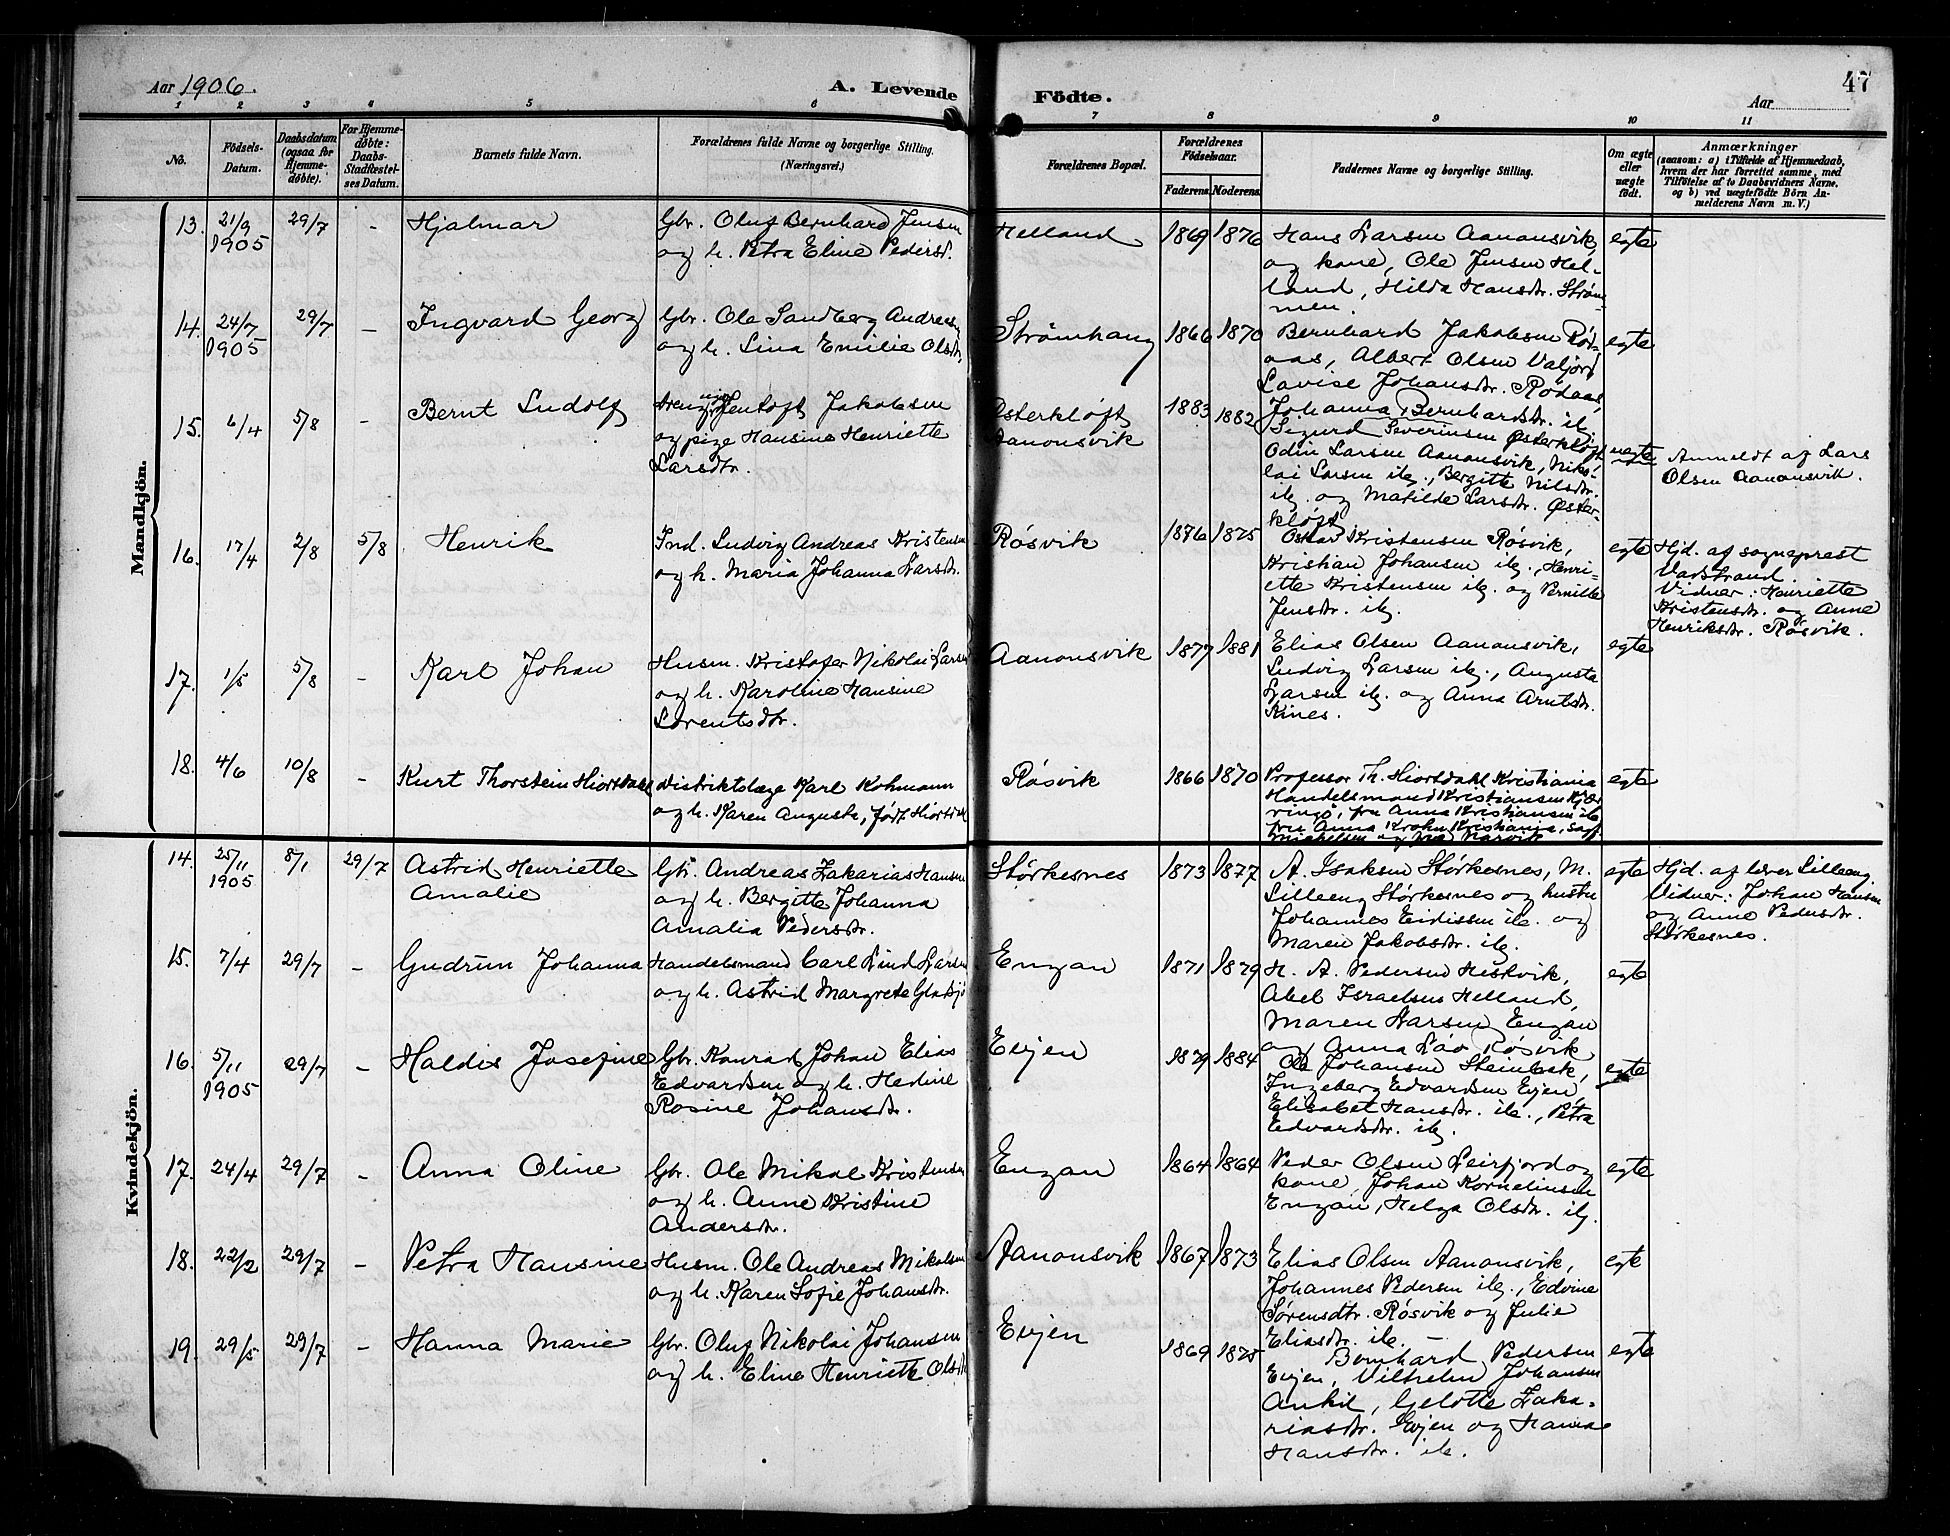 Aar 1906.
A. Levende Födte.
47
Aar
1 2 3 4 5 6 7 8 9 10 11
No.
Födsels-Datum.
Daabsdatum (ogsaa for Hjemme-døbte).
For Hjemme-døbte: Daabs-Stadfæstel-ses Datum.
Barnets fulde Navn.
Forældrenes fulde Navne og borgerlige Stilling. (Næringsvei.)
Forældrenes Bopæl.
Forældrenes Födselsaar.
Faderens Moderens
Faddernes Navne og borgerlige Stilling.
Om ægte eller uægte födt.
Anmærkninger
(saasom: a) i Tilfælde af Hjemmedaab,
hvem der har forrettet samme, med
Tilföielse af to Daabsvidners Navne,
og b) ved uægtefödte Börn An-
melderens Navn m. V.)
Mandkjön.
13. 21/9 1905 29/7 - Hjalmar
Gbr. Oluf Bernhard Jensen
og h. Petra Eline Pedersd.
Helland 1869 1876
Hans Larsen Aanonsvik,
og kone, Ole Jensen Hel-
land, Hilda Hansdtr. Strøm-
men.
egte
14. 24/7 1905 29/7 - Ingvard Georg
Gbr. Ole Sandberg Andreas
og h. Lina Emilie Olsdtr.
Strømhaug 1866 1870
Bernhard Jakobsen Rød-
aas, Albert Olsen Valjord
Lovise Johansdtr. Rødaas,
Johanna Bernhardsdtr. ib.
egte
15. 6/4 5/8 - Bernt Ludolf
Jentoft Jakobsen
og pige Hansine Henriette
Larsdtr.
Østerkløft
Aanonsvik
1883 1882
Sigurd Severinsen Østerkløft
Odin Larsen Aanonsvik, Niko-
lai Larsen ib., Bergitte Nilsdtr.
ib. og Matilde Larsdtr. Øster-
kløft
uegte
Anmeldt af Lars
Olsen Aanonsvik.
16. 17/4 2/8 5/8 Henrik
Ind. Ludvig Andreas Kristensen
og h. Maria Johanna Larsdtr.
Røsvik 1876 1875
Oskar Kristensen Røsvik,
Kristian Johansen ib., Henri-
ette Kristensen ib. og Pernille
Jensdtr. ib.
egte
Hjd. af sogneprest
Vadstrand.
Vidner: Henriette
Kristensdtr. og Anne
Henriksdtr. Røsvik.
17. 1/5 5/8 - Karl Johan
Husm. Kristofer Nikolai Larsen
og h. Karoline Hansine
Lorentsdtr.
Aanonsvik 1877 1881
Elias Olsen Aanonsvik,
Ludvig Larsen ib., Augusta
Larsen ib. og Anna Arntsdtr.
Kines.
egte
18. 4/6 10/8 - Kurt Thorstein Hiortdahl
Distriktslæge Karl Kohmann
og h. Karen Augusta, født Hiortdahl
Røsvik 1866 1870
Professor Th. Hiortdahl Kristiania
Handelsmand Kristiansen Kjær-
ringø, fru Anna Kristiansen ib.
fru Anna Krohn Kristiania,
egte
Kvindekjön.
14. 25/11 1905 8/1 29/7 Astrid Henriette
Amalie
Gbr. Andreas Zakarias Hansen
og h. Bergitte Johanna
Amalia Pedersdtr.
Størkesnes 1873 1877
A. Isaksen Størkesnes, M.
Lilleeng Størkesnes og hustru
Johannes Eidissen ib. og
Maren Jakobsdtr. ib.
egte
Hjd. af lærer Lilleeng
Vidner: Johan Hansen
og Anne Pedersdtr.
Størkesnes.
15. 7/4 29/7 - Gudrun Johanna
Handelsmand Carl Lind Larsen
og h. Astrid Margrete
Engan 1871 1879
H. A. Pedersen Heskvik,
Abel Israelsen Helland,
Maren Larsen Engan
og Anna Røsvik
egte
16. 5/11 1905 29/7 - Haldis Josefine
Gbr. Konrad Johan Elias
Edvardsen og h. Hedine
Rosine Johansdtr.
Evjen 1879 1884
Ole Johansen Steinbak,
Ingeberg Edvardsen Evjen,
Elisabet Hansdtr. ib., Petra
Edvardsdtr. ib.
egte
17. 24/4 29/7 - Anna Oline
Gbr. Ole Mikal Kristensen
og h. Anne Kristine
Andersdtr.
Engan 1864 1864
Peder Olsen Leirfjord og
kone, Johan Kornelinsen
Engan, Helga Olsdtr. ib.
egte
18. 22/2 29/7 - Petra Hansine
Husm. Ole Andreas Mikalsen
og h. Karen Sofie Johansdtr.
Aanonsvik 1867 1873
Elias Olsen Aanonsvik,
Johannes Pedersen ib., Edvine
Sørensdtr. Røsvik og Julie
Eliasdtr. ib. -
egte
19. 29/5 29/7 - Hanna Marie
Gbr. Oluf Nikolai Johansen
og h. Eline Henriette Olsdtr.
Evjen 1869 1875
Bernhard Pedersen
Evjen, Vilhelm Johansen
Ankil, Gelotte Zaka-
riasdtr. Evjen og Hanna
Hansdtr. ib.
egte